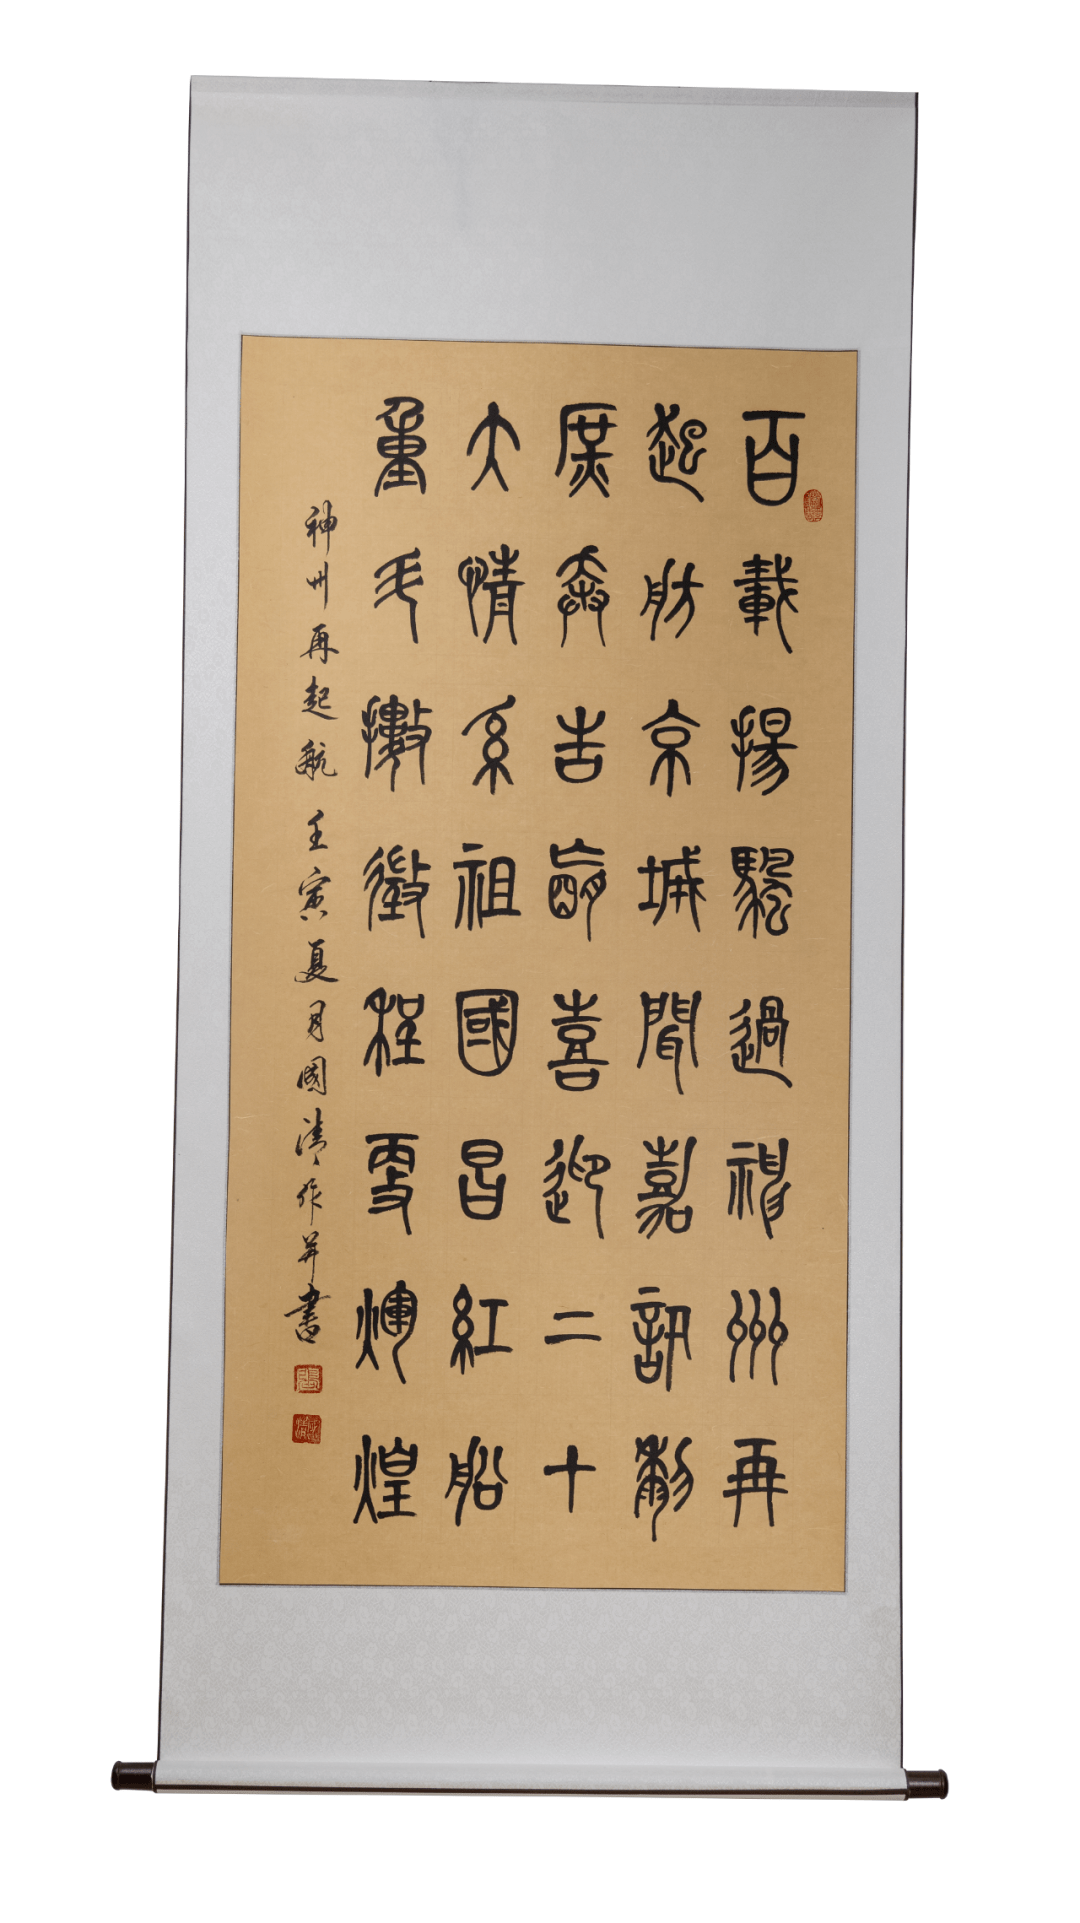 百載揚颿過神州再
起航京城聞嘉訊黎
庶奏吉喜迎二十
大情系祖國昌紅船
重斗擻徵程更輝煌
神州再起航 壬寅夏月國清作并書